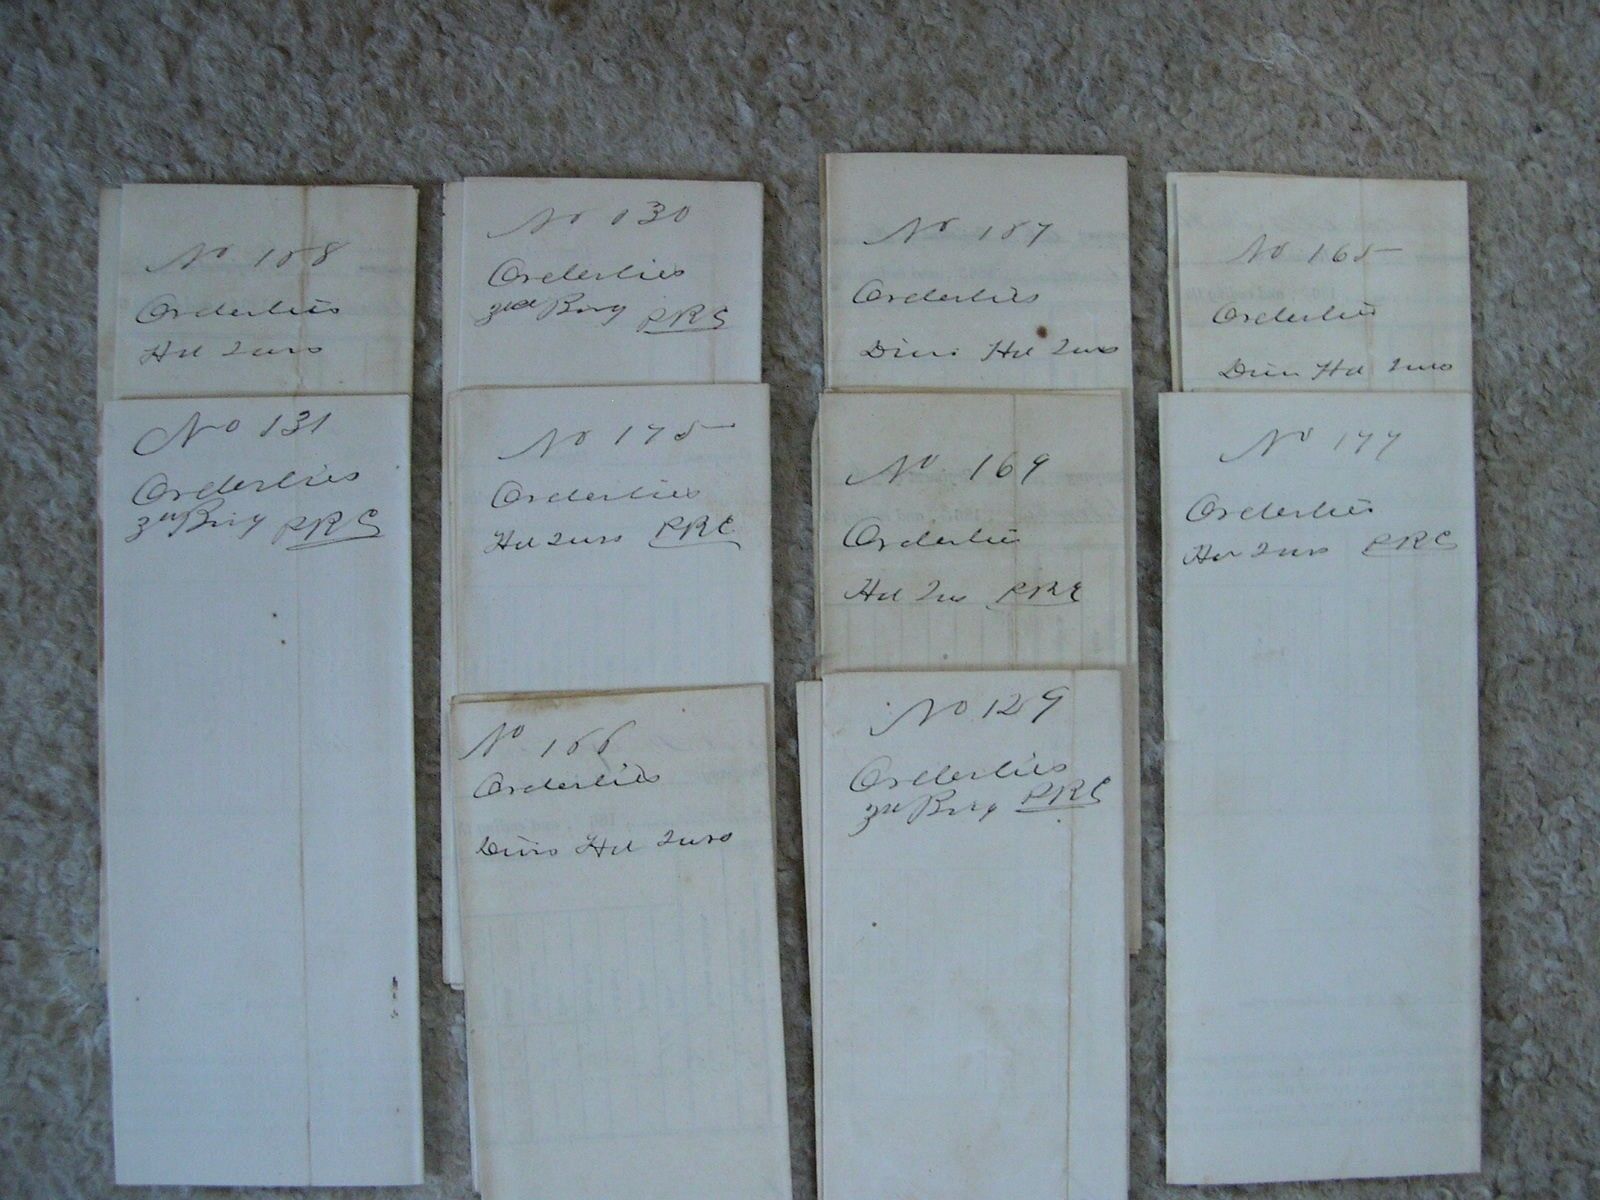 No 168
Orderlies
Hd Qurs
No 131
Orderlies
3rd Brig PRC
No 130
Orderlies
3rd Brig PRC
No 175
Orderlies
Hd Qurs PRC
No 166
Orderlies
Divis Hd Qurs
No 167
Orderlies
Divis Hd Qurs
No 169
Orderlies
Hd Qus PRC
No 129
Orderlies
3rd Brig PRC
No 165
Orderlies
Divis Hd Qurs
No 177
Orderlies
Hd Qurs PRC